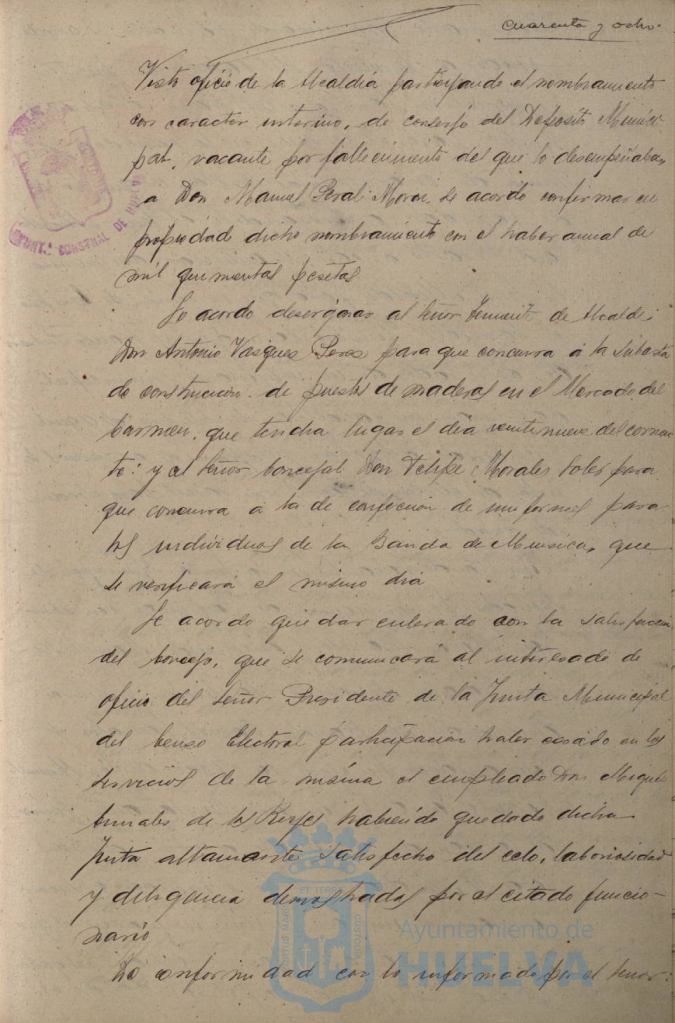 cuarenta y ocho.
Visto oficio de la Alcaldia participando el nombramiento
con caracter interino, de conserje del Deposito Munici
pal, vacante por fallecimiento del que lo desempeñaba,
a Don Manuel Peral Mora, se acordó confirmar en
propiedad dicho nombramiento con el haber anual de
mil quinientas pesetas
Se acordo designar al Señor Teniente de Alcalde,
Don Antonio Vasques Peres para que concurra á la subasta
de construcción de puestos de maderas en el Mercado del
Carmen, que tendra lugar el dia veintinueve del corrien
te: y al Señor Concejal Don Felipe Morales Soler para
que concurra á la de confección de uniformes para
los individuos de la Banda de Musica, que
se verificará el mismo dia
Se acordo quedar enterado con la satisfaccion
del Concejo, que se comunicará al interesado de
oficio del Señor Presidente de la Junta Municipal
del Censo Electoral participacion haber cesado en los
servicios de la misma el empleado Don Miguel
de los Reyes habiendo quedado dicha
Junta altamente satisfecho del celo, laboriosidad
y diligencia demostradas por el citado funcio-
nario
De conformidad con lo informado por el Señor
AYUNT.º CONSTNAL. DE HUELVA
Ayuntamiento de
HUELVA